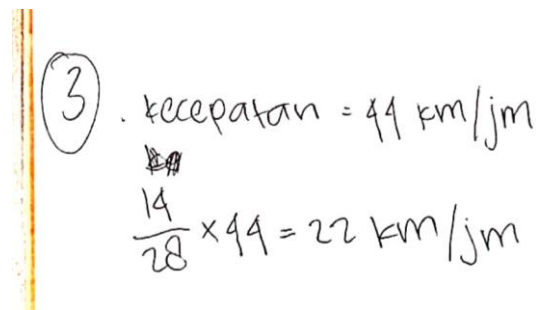 3. kecepatan = 44 km/jm
14/28 × 44 = 22 km/jm